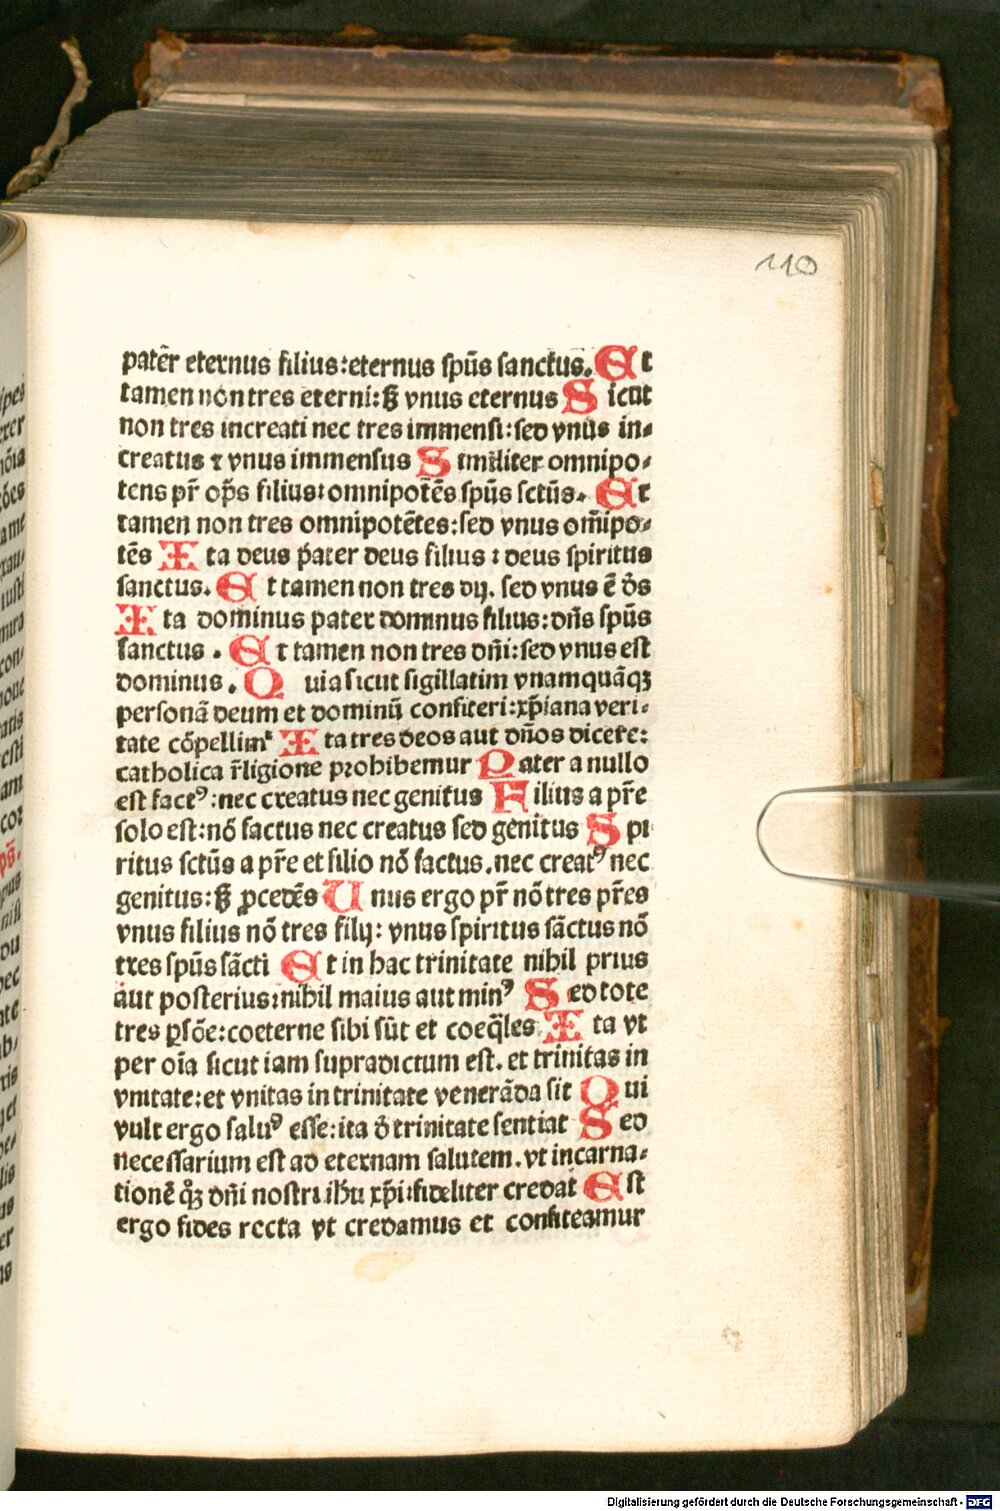 110
patēr eternus filius:eternus spūs sanctus. Et
tamen non tres eterni:ꝫ vnus eternus Sicut
non tres increati nec tres immensi:sed vnus in⸗
creatus ⁊ vnus immensus Similiter omnipo⸗
tens pr̄ op̄s filius:omnipotēs spūs sctūs. Et
tamen non tres omnipotētes:sed vnus om̄ipo⸗
tēs Ita deus pater deus filius : deus spiritus
sanctus. Et tamen non tres dij. sed vnus ē d̄s
Ita dominus pater dominus filius:dn̄s spūs
sanctus . Et tamen non tres dn̄i:sed vnus est
dominus. Quia sicut sigillatim vnamquāqꝫ
personā deum et dominū confiteri:xp̄iana veri⸗
tate cōpellimꝰ Ita tres deos aut dn̄os dicere:
catholica r̄ligione prohibemur Pater a nullo
est factꝰ:nec creatus nec genitus Filius a pr̄e
solo est:nō factus nec creatus sed genitus Spi
ritus sctūs a pr̄e et filio nō factus.nec creatꝰ nec
genitus:ꝫ ꝓcedēs Unus ergo pr̄ nō tres pr̄es
vnus filius nō tres filij: vnus spiritus sāctus nō
tres spūs sācti Et in hac trinitate nihil prius
aut posterius:nihil maius aut minꝰ Sed tote
tres ꝑsōe:coeterne sibi sūt et coeq̄les Ita vt
per oīa sicut iam supradictum est. et trinitas in
vnitate:et vnitas in trinitate venerāda sit Qui
vult ergo saluꝰ esse:ita d̄ trinitate sentiat Sed
necessarium est ad eternam salutem.vt incarna⸗
tionē qꝫ dn̄i nostri ihu xp̄i:fideliter credat Est
ergo fides recta vt credamus et confiteamur
Digitalisierung gefördert durch die Deutsche Forschungsgemeinschaft - DFG